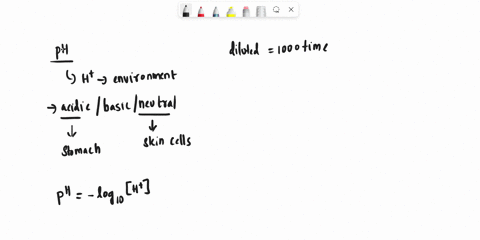 pH
↳ H⁺ → environment
→ acidic / basic / neutral
↓ ↓
stomach skin cells
pH = -log₁₀ [H⁺]
diluted = 1000 time